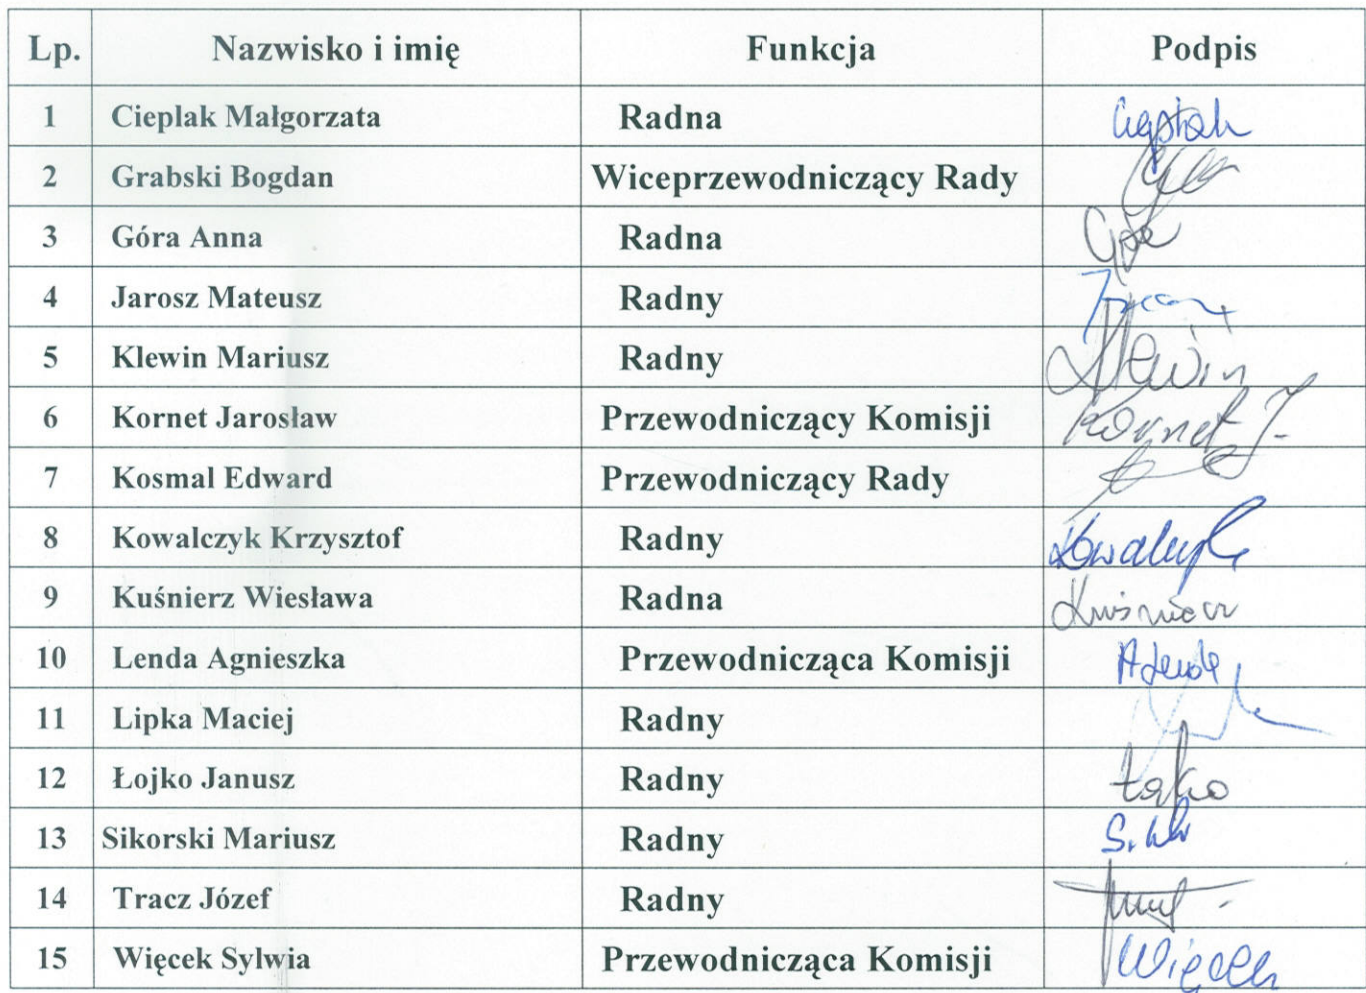 Lp. Nazwisko i imię Funkcja Podpis
1 Cieplak Małgorzata Radna
2 Grabski Bogdan Wiceprzewodniczący Rady
3 Góra Anna Radna
4 Jarosz Mateusz Radny
5 Klewin Mariusz Radny Klewin
6 Kornet Jarosław Przewodniczący Komisji Kornet J.
7 Kosmal Edward Przewodniczący Rady
8 Kowalczyk Krzysztof Radny
9 Kuśnierz Wiesława Radna
10 Lenda Agnieszka Przewodnicząca Komisji
11 Lipka Maciej Radny
12 Łojko Janusz Radny
13 Sikorski Mariusz Radny
14 Tracz Józef Radny
15 Więcek Sylwia Przewodnicząca Komisji Więcek